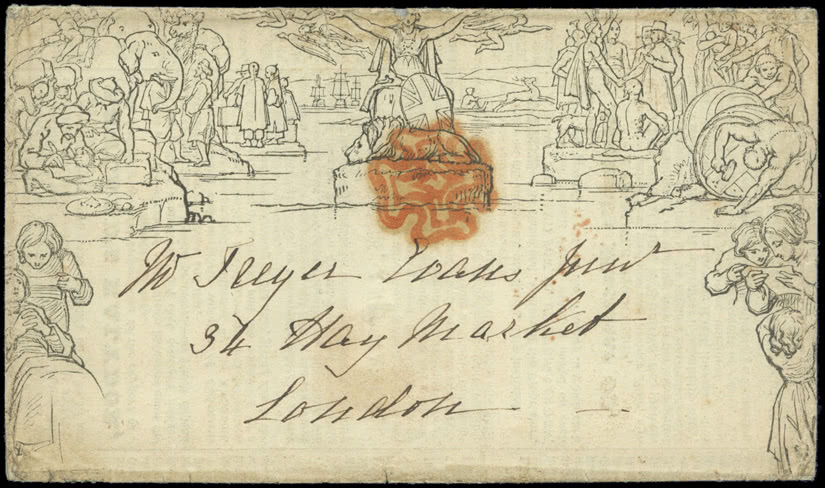 Mr Freyer Evans Junr
34 Hay Market
London